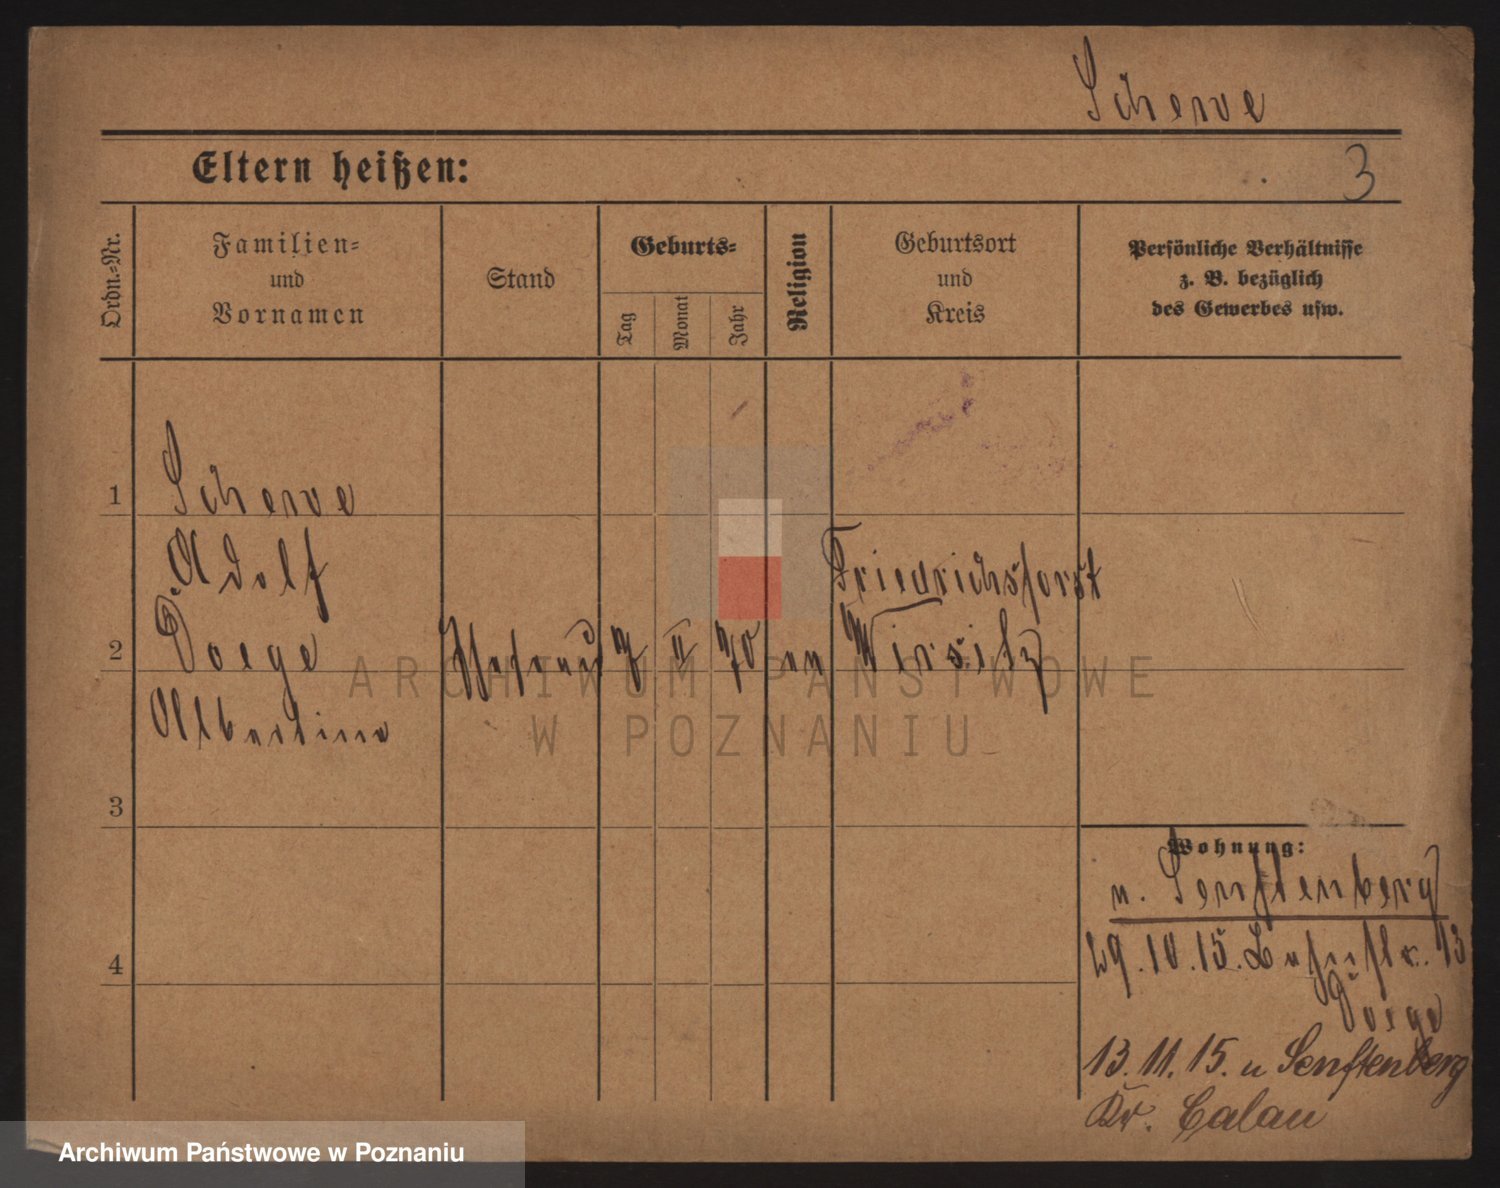 Scherve
3
Eltern heißen:
Ordn.-Nr.
Familien-
und
Vornamen
Stand
Geburts-
Tag
Monat
Jahr
Religion
Geburtsort
und
Kreis
Persönliche Verhältnisse
z. B. bezüglich
des Gewerbes usw.
1 Scherve
Adolf
2 Doege
II 70
Friedrichshorst
Wirsitz
Albertine
3
4
Wohnung:
n. Senftenberg
29.10.15. 13
Doege
13.11.15. n Senftenberg
Kr. Calau
ARCHIWUM PAŃSTWOWE
W POZNANIU
Archiwum Państwowe w Poznaniu